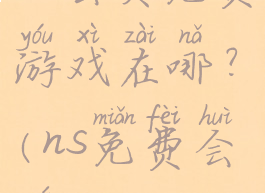 yóu xì zài nǎ
游戏在哪？
miǎn fèi huì
（ns免费会